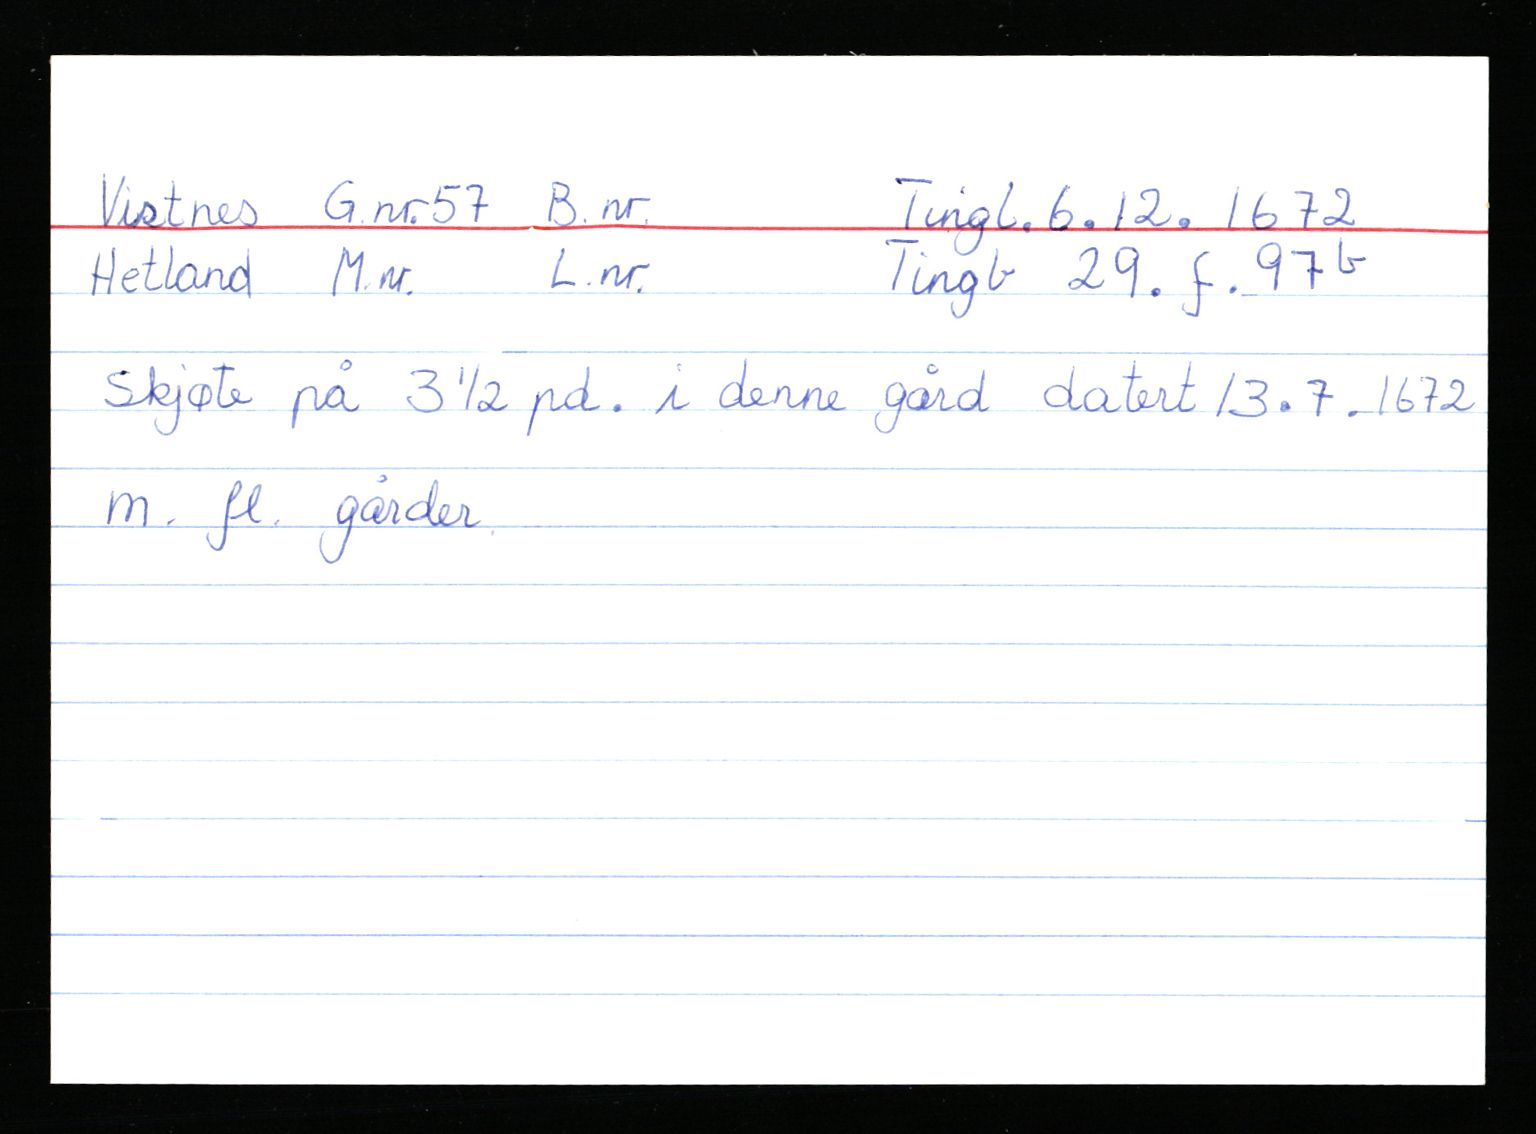 Vistnes G.nr.57 B.nr. Tingl. 6.12.1672
Hetland M.nr. L.nr. Tingb 29. f. 97b
Skjøte på 3 1/2 pd. i denne gård datert 13.7.1672
m. fl. gårder.